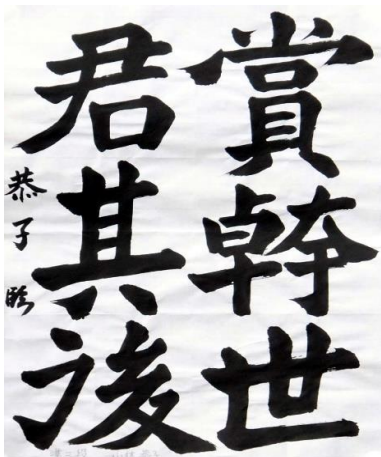 賞榦世
君其後
恭子臨